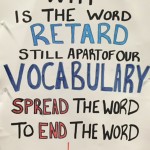 WHY
IS THE WORD
RETARD
STILL APART OF OUR
VOCABULARY
SPREAD THE WORD
TO END THE WORD